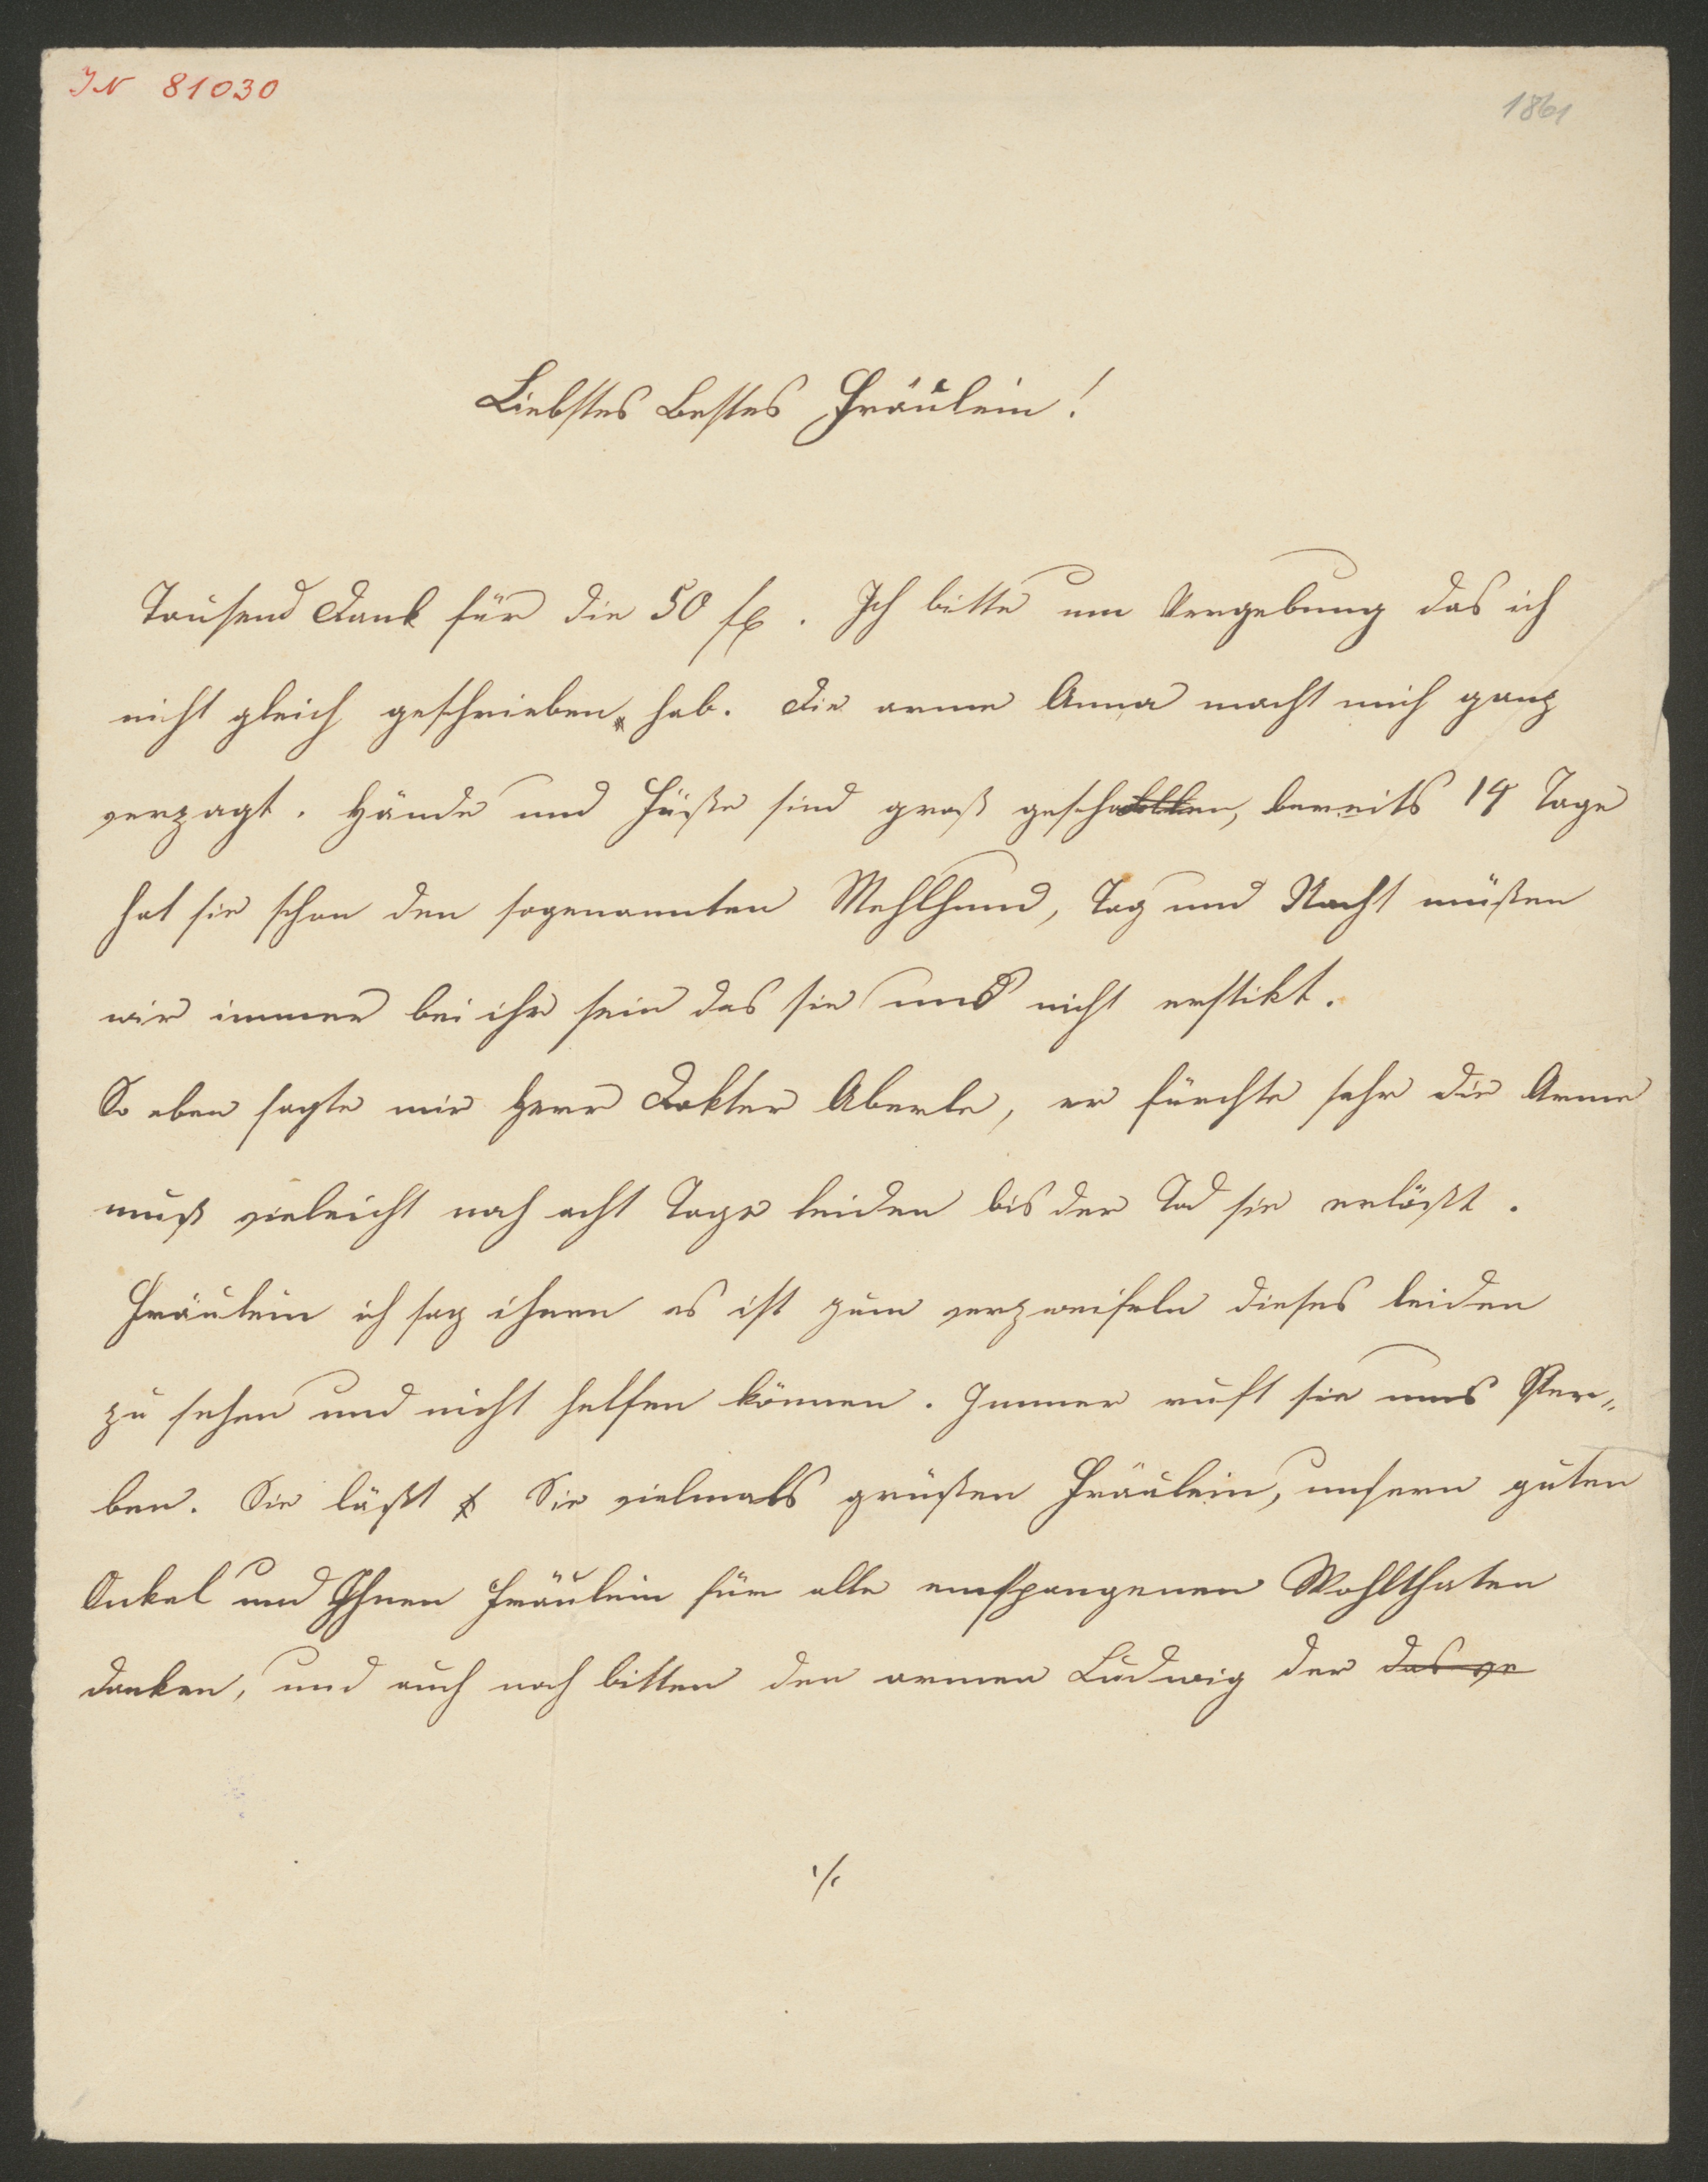 IN 81030
1861
Liebstes Bestes Fräulein!
Tausend Dank für die 50 fl. Ich bitte um Vergebung das ich
nicht gleich geschrieben hab. Die arme Anna macht mich ganz
verzagt. Hände und Füße sind groß geschwollen, bereits 14 Tage
hat sie schon den sogenannten Mehlhund, Tag und Nacht müßen
wir immer bei ihr sein das sie uns nicht erstikt.
So eben sagte mir Herr Dokter Aberle, er fürchte sehr die Arme
muß vieleicht noch acht Tage leiden bis der Tod sie erlößt.
Fräulein ich sag ihnen es ist zum verzweifeln dieses leiden
zu sehen und nicht helfen können. Immer ruft sie nur Ster„
ben. Sie läßt Sie vielmals grüßen Fräulein, unsern guten
Onkel und Ihnen Fräulein für alle empfangenen Wohlthaten
danken, und auch noch bitten den armen Ludwig der das ve
./.